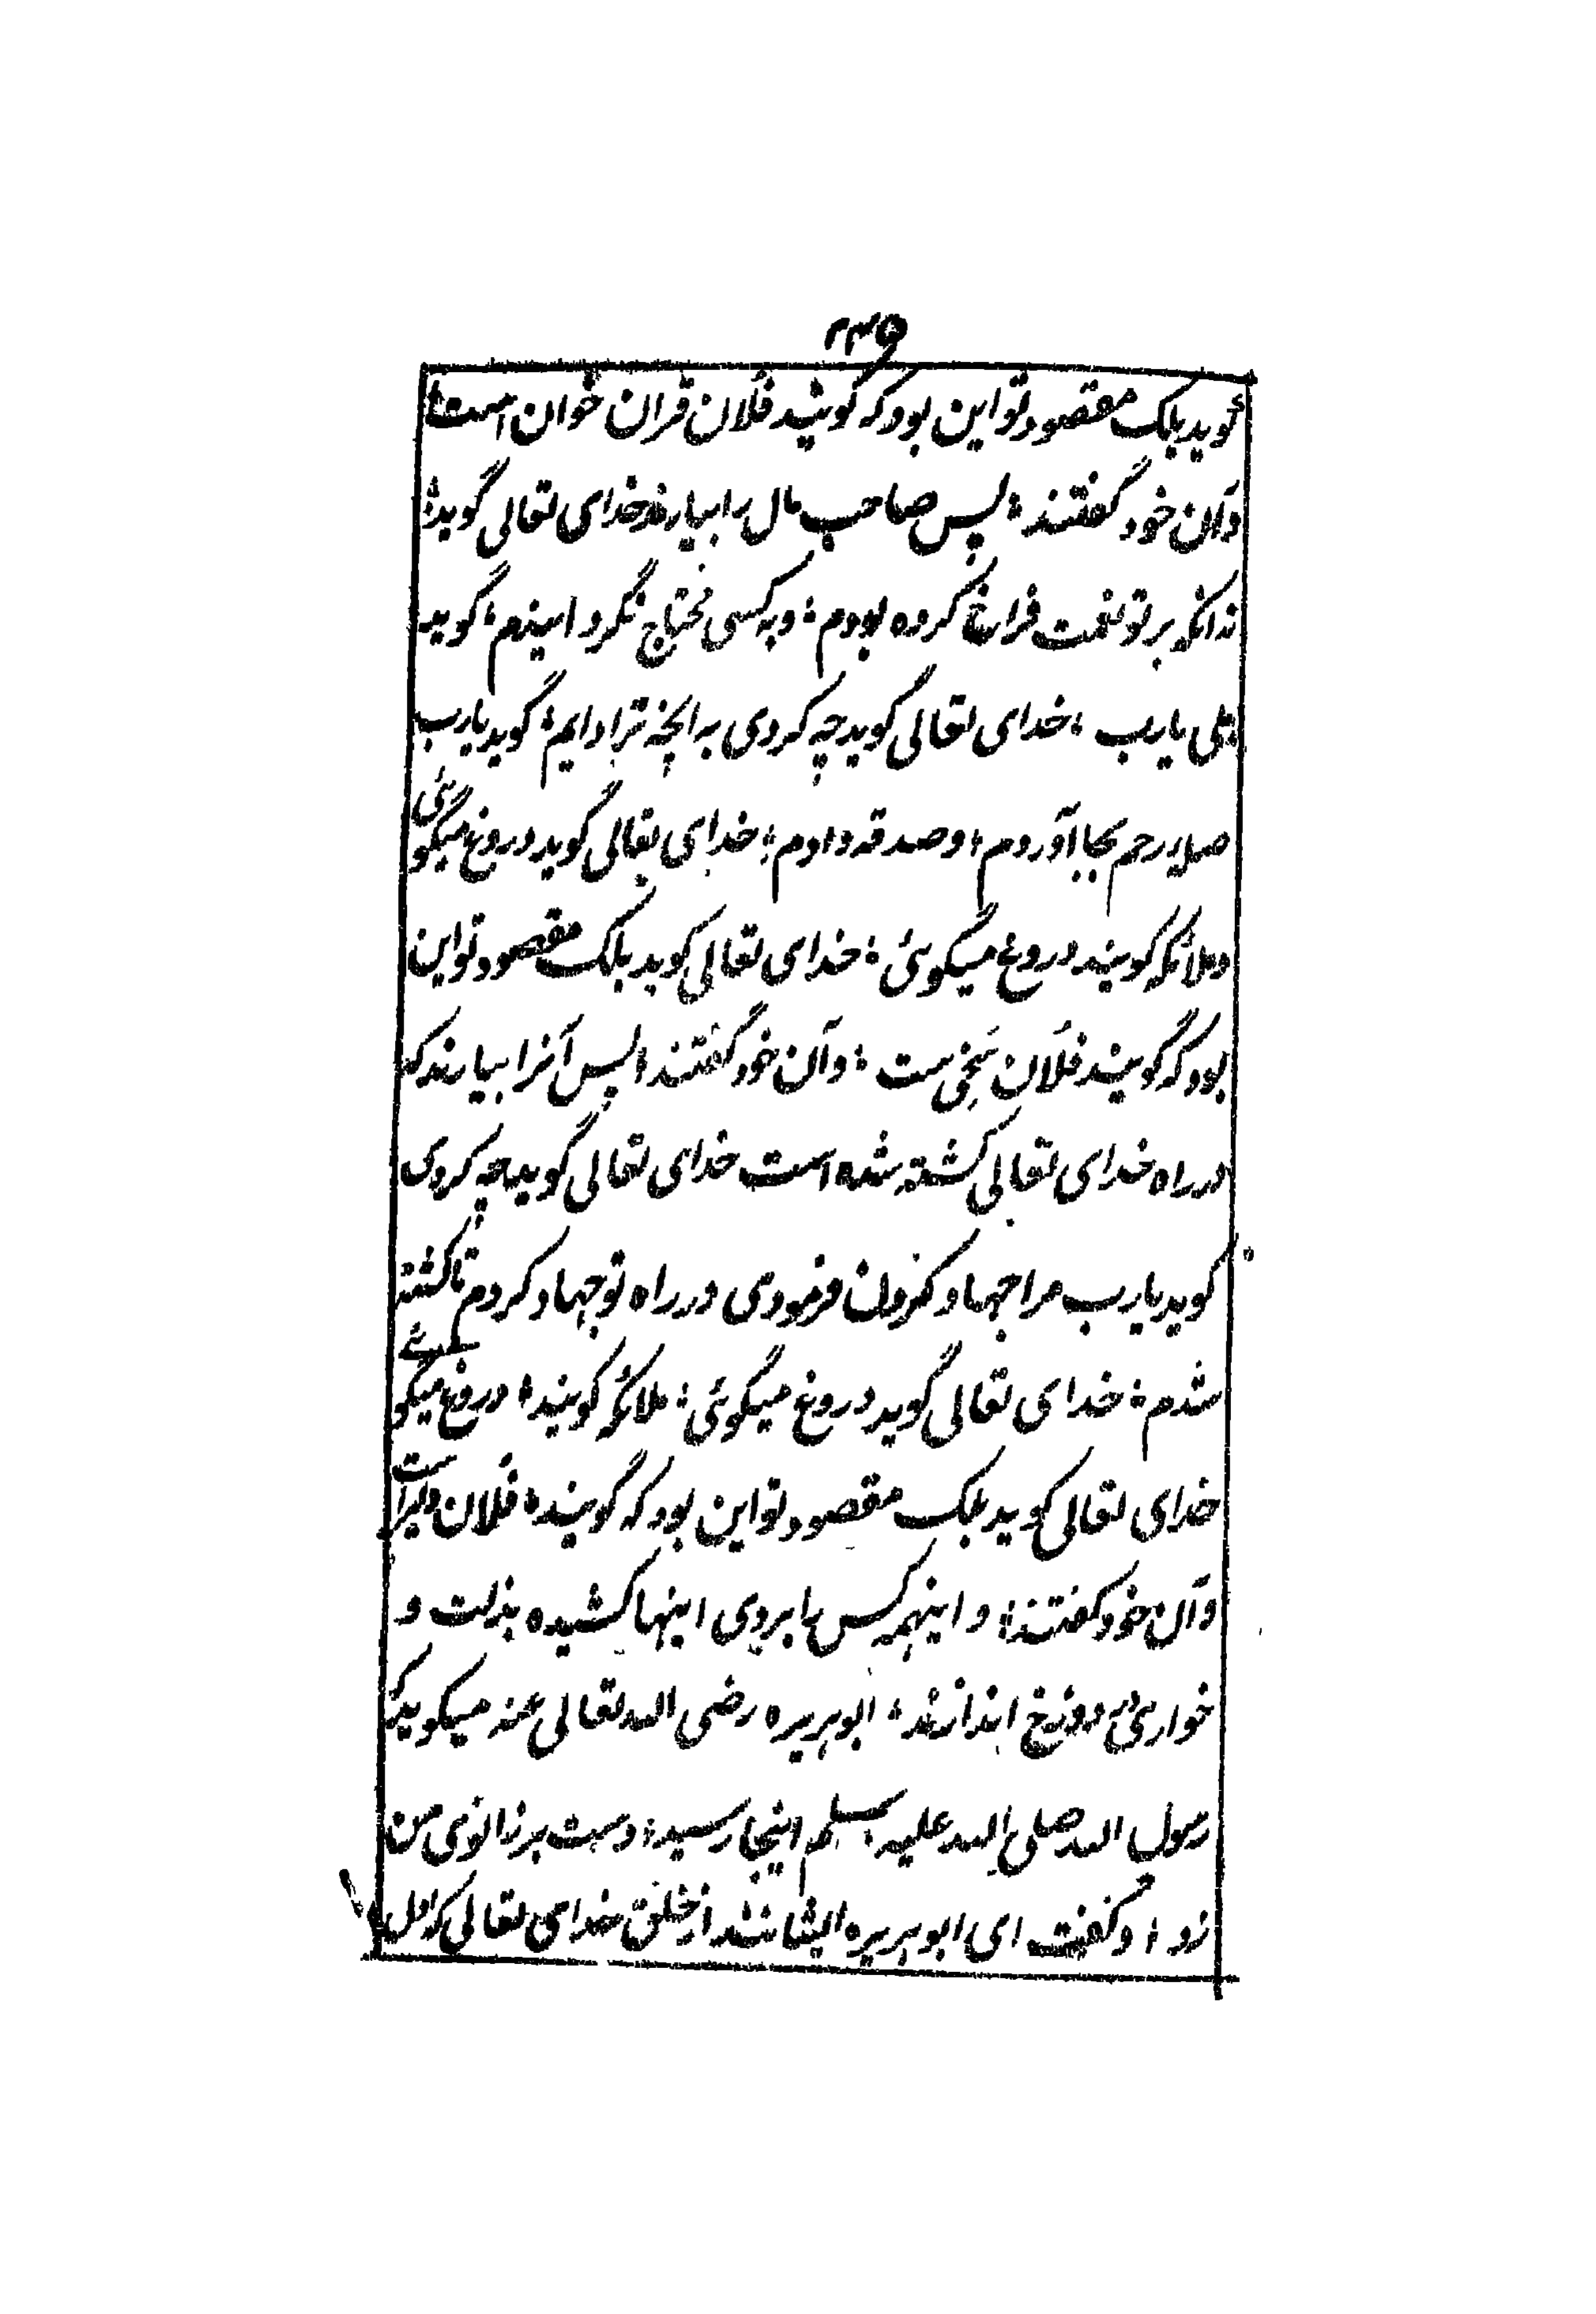 ۲۳۵
گوید بلکه مقصود تو این بود که گویند فلان قران خوان است
وآن خود گفتند ؛ پس صاحب مال را بیارند خدای تعالی گوید ؛
نه آنکه بر تو نعمت فراخ کرده بودم ؛ و به کسی محتاج نگردانیدم ؛ گوید
بلی یارب ؛ خدای تعالی گوید چه کردی به آنچه ترا دادیم ؛ گوید یارب
صلهٔ رحم بجا آوردم ؛ وصدقه دادم ؛ خدای تعالی گوید دروغ میگوئی
وملائکه گویند دروغ میگوئی ؛ خدای تعالی گوید بلکه مقصود تو این
بود که گویند فلان سخی ست ؛ وآن خود گفتند ؛ پس آنرا بیارند که
در راه خدای تعالی کشته شده است خدای تعالی گوید چه کردی
گوید یارب مرا جهاد کردن فرمودی در راه تو جهاد کردم تا کشته
شدم ؛ خدای تعالی گوید دروغ میگوئی ؛ ملائکه گویند ؛ دروغ میگوئے
خدای تعالی گوید بلکه مقصود تو این بود که گویند ؛ فلان دلیراست
وآن خود گفتند ؛ و اینهمه کس را بروی اینها کشیده بذلت و
خواری در دوزخ اندازند ؛ ابوہریرہ رضی اللہ تعالی عنہ میگوید که
رسول اللہ صلی اللہ علیہ وسلم اینجا رسید ؛ دست بر زانوی من
زد ؛ وگفت ای ابوہریرہ ایشانند از خلق خدای تعالی که اول